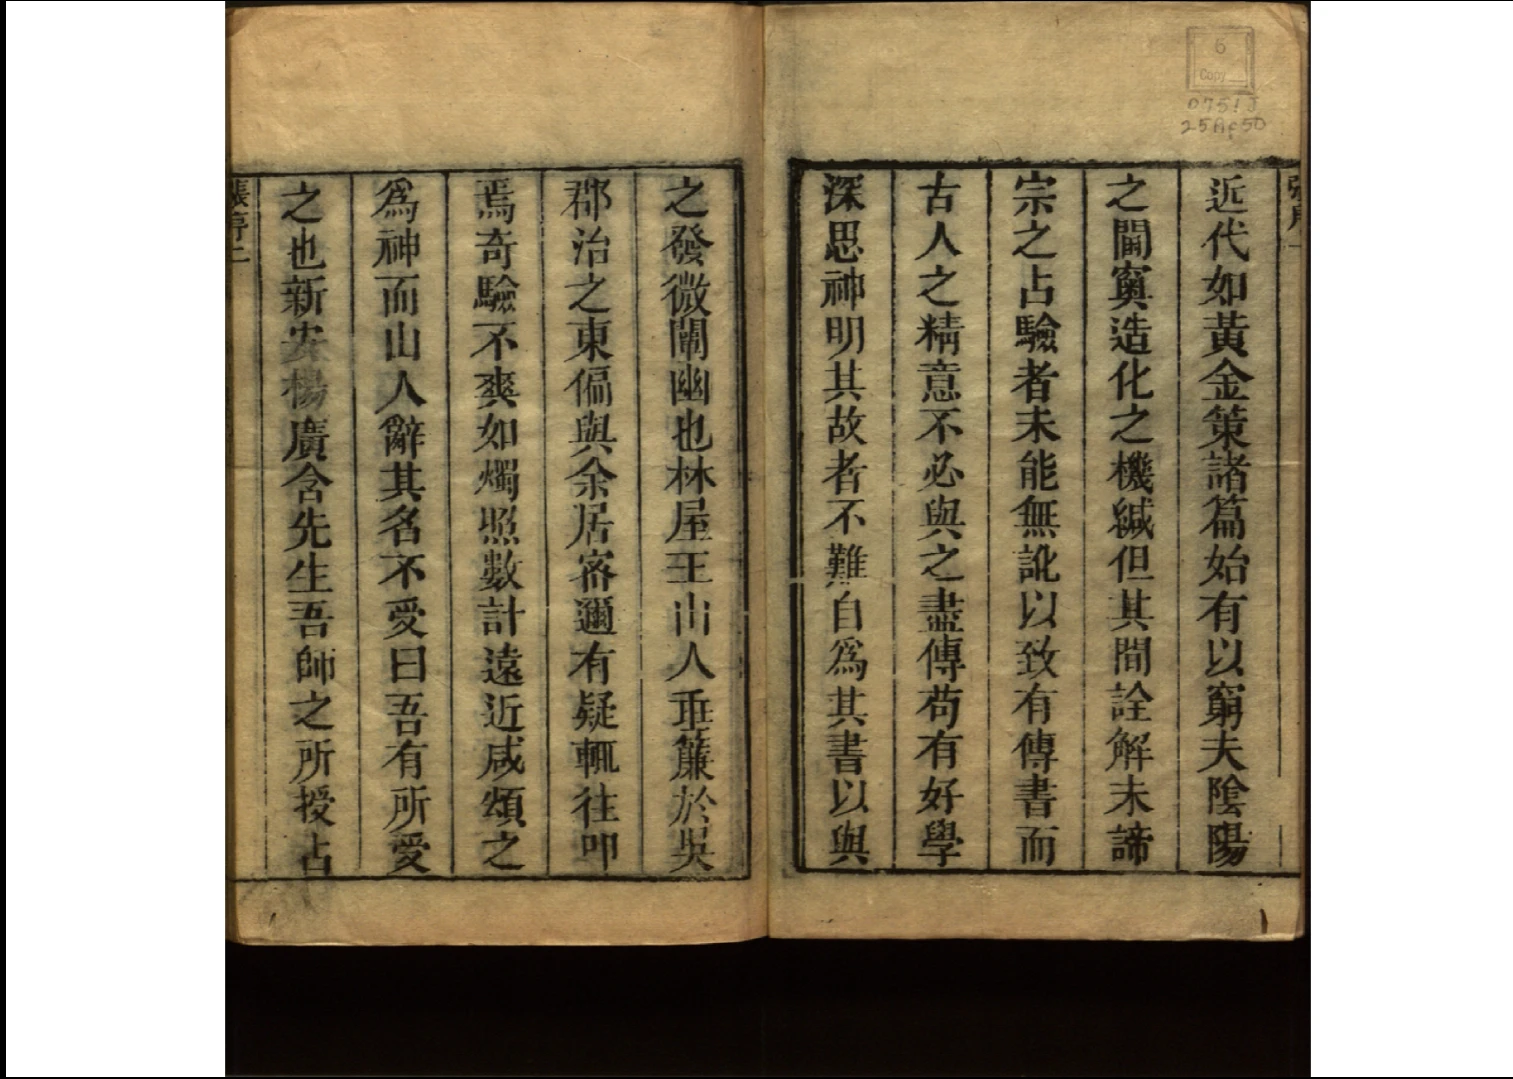 6
Copy
0751J
近代如黃金策諸篇始有以窮夫陰陽
之閫窽造化之機緘但其間詮解未諦
宗之占驗者未能無訛以致有傳書而
古人之精意不必與之盡傳苟有好學
深思神明其故者不難自爲其書以與
之發微闡幽也林屋王山人垂簾於吳
郡治之東偏與余居宻邇有疑輒往叩
焉奇驗不爽如燭照數計遠近咸頌之
爲神而山人辭其名不受曰吾有所愛
之也新安楊廣含先生吾師之所授占
張序二